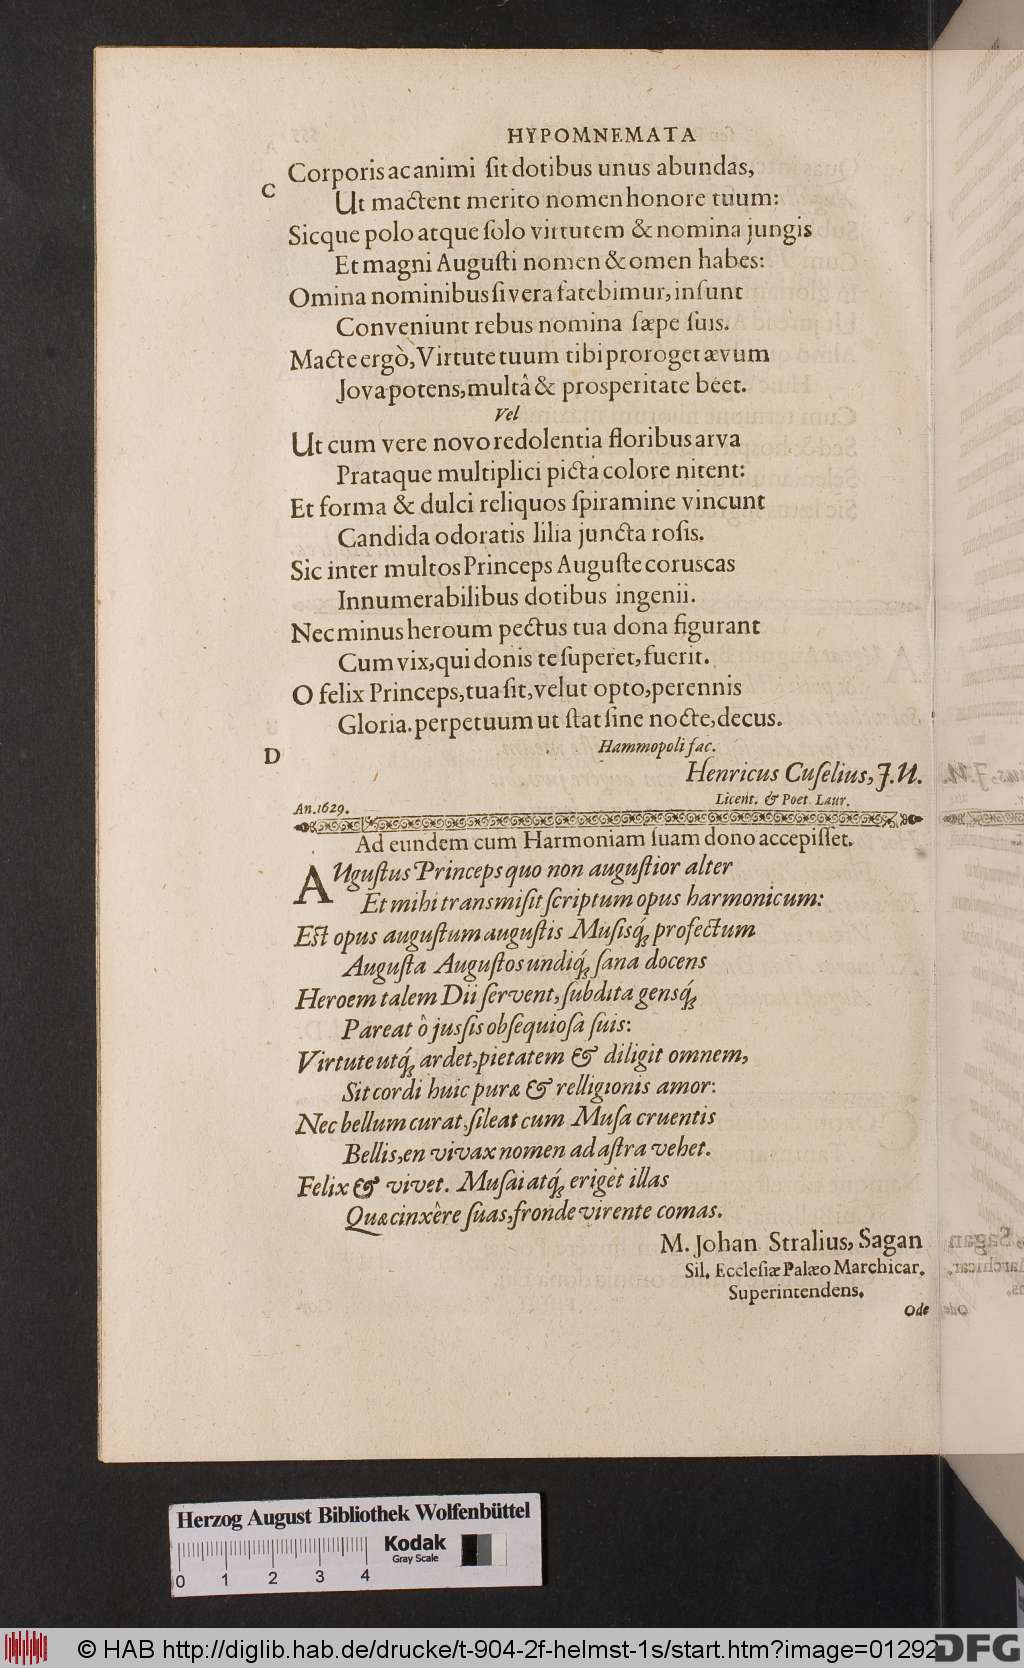 HYPOMNEMATA
Corporis ac animi ſit dotibus unus abundas,
C
Ut mactent merito nomen honore tuum:
Sicque polo atque ſolo virtutem & nomina jungis
Et magni Auguſti nomen & omen habes:
Omina nominibus ſi vera fatebimur, inſunt
Conveniunt rebus nomina ſæpe ſuis.
Macte ergò, Virtute tuum tibi proroget ævum
Jova potens, multâ & prosperitate beet.
Vel
Ut cum vere novo redolentia floribus arva
Prataque multiplici picta colore nitent:
Et forma & dulci reliquos ſpiramine vincunt
Candida odoratis lilia juncta roſis.
Sic inter multos Princeps Auguſte coruscas
Innumerabilibus dotibus ingenii.
Nec minus heroum pectus tua dona figurant
Cum vix, qui donis te ſuperet, fuerit.
O felix Princeps, tua ſit, velut opto, perennis
Gloria. perpetuum ut ſtat ſine nocte, decus.
Hammopoli fac.
D
Henricus Cuſelius, J.U.
Licent. & Poet. Laur.
An. 1629.
Ad eundem cum Harmoniam ſuam dono accepiſſet.
AUguſtus Princeps quo non auguſtior alter
Et mihi transmiſit ſcriptum opus harmonicum:
Eſt opus auguſtum auguſtis Muſisq́; profectum
Auguſta Auguſtos undiq́; ſana docens
Heroem talem Dii ſervent, ſubdita gensq́;
Pareat ô juſſis obſequioſa ſuis:
Virtute utq́; ardet, pietatem & diligit omnem,
Sit cordi huic puræ & relligionis amor:
Nec bellum curat, ſileat cum Muſa cruentis
Bellis, en vivax nomen ad aſtra vehet.
Felix & vivet. Muſai atq́; eriget illas
Quæ cinxêre ſuas, fronde virente comas.
M. Johan Stralius, Sagan
Sil. Eccleſiæ Palæo Marchicar.
Superintendens.
Ode
Herzog August Bibliothek Wolfenbüttel
Kodak
Gray Scale
0 1 2 3 4
© HAB http://diglib.hab.de/drucke/t-904-2f-helmst-1s/start.htm?image=01292
DFG